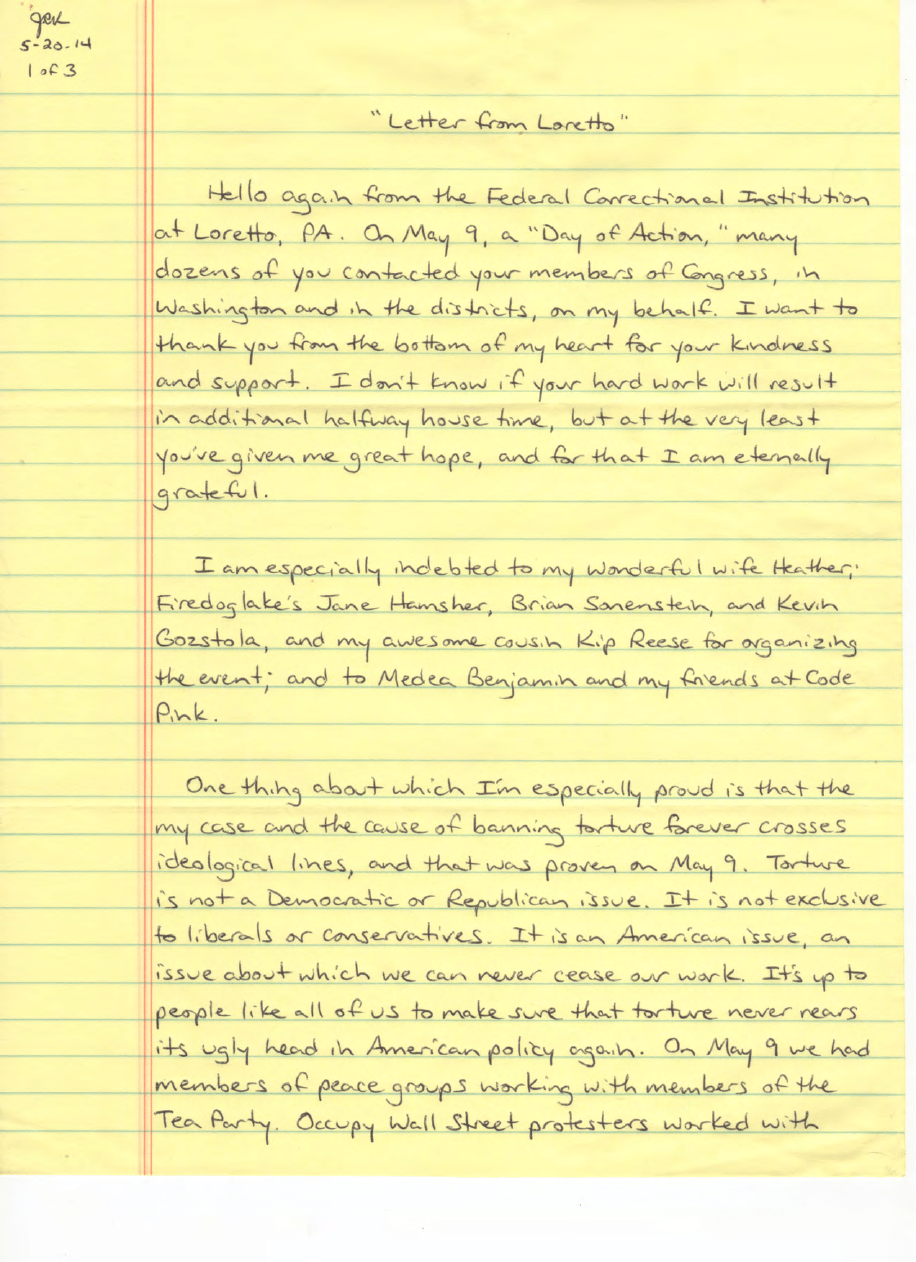 jck
5-20-14
1 of 3
"Letter from Loretto"
Hello again from the Federal Correctional Institution
at Loretto, PA. On May 9, a "Day of Action," many
dozens of you contacted your members of Congress, in
Washington and in the districts, on my behalf. I want to
thank you from the bottom of my heart for your kindness
and support. I don't know if your hard work will result
in additional halfway house time, but at the very least
you've given me great hope, and for that I am eternally
grateful.
I am especially indebted to my wonderful wife Heather;
Firedoglake's Jane Hamsher, Brian Sonenstein, and Kevin
Gozstola, and my awesome cousin Kip Reese for organizing
the event; and to Medea Benjamin and my friends at Code
Pink.
One thing about which I'm especially proud is that the
my case and the cause of banning torture forever crosses
ideological lines, and that was proven on May 9. Torture
is not a Democratic or Republican issue. It is not exclusive
to liberals or conservatives. It is an American issue, an
issue about which we can never cease our work. It's up to
people like all of us to make sure that torture never rears
its ugly head in American policy again. On May 9 we had
members of peace groups working with members of the
Tea Party. Occupy Wall Street protesters worked with